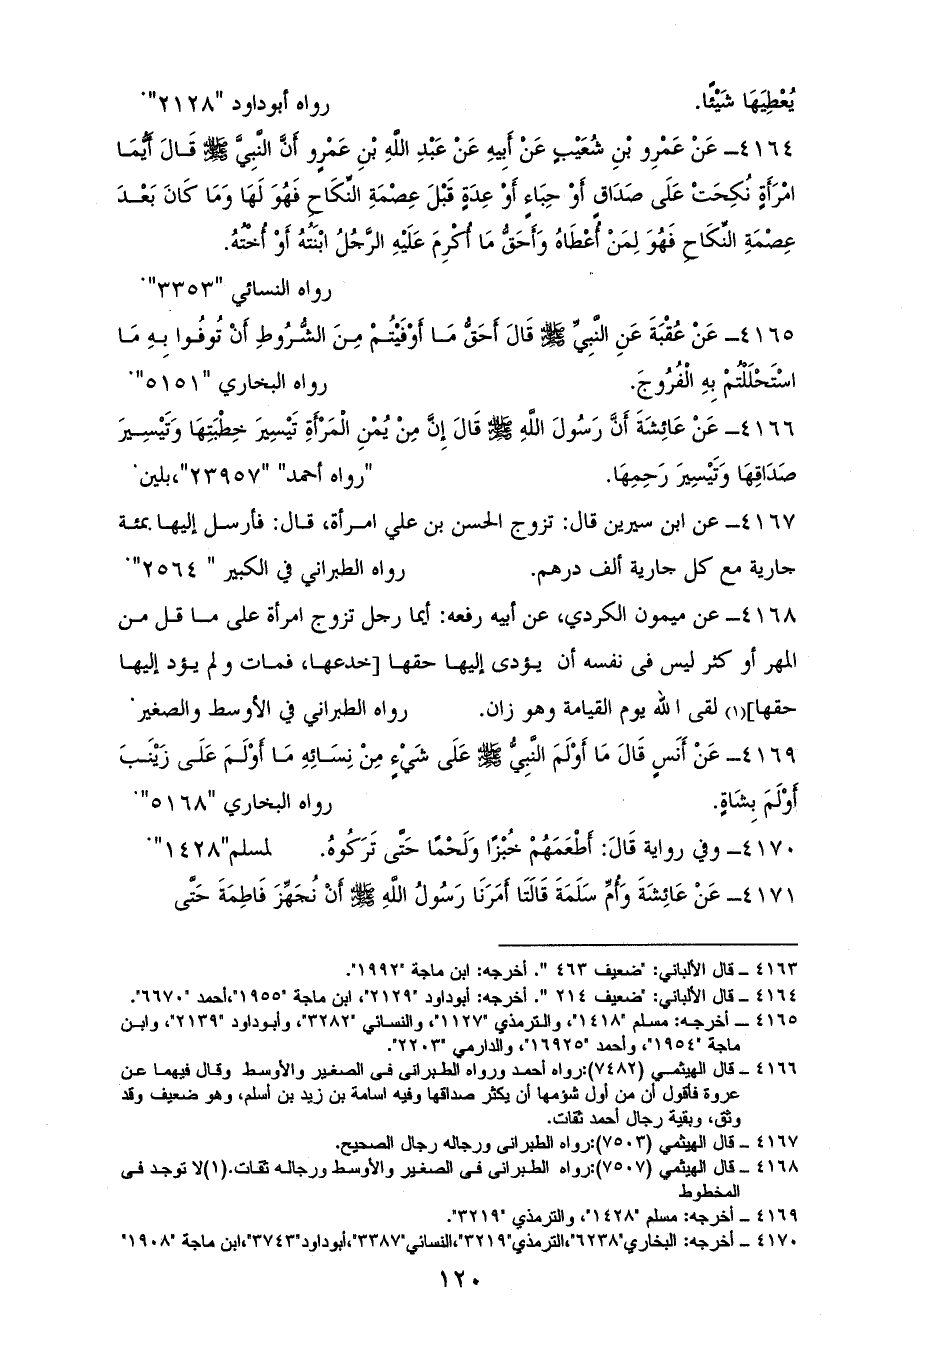 يُعْطِيَهَا شَيْئًا. رواه أبوداود "٢١٢٨".
٤١٦٤ـ عَنْ عَمْرِو بْنِ شُعَيْبٍ عَنْ أَبِيهِ عَنْ عَبْدِ اللَّهِ بْنِ عَمْرٍو أَنَّ النَّبِيَّ ﷺ قَالَ أَيُّمَا
امْرَأَةٍ نُكِحَتْ عَلَى صَدَاقٍ أَوْ حِبَاءٍ أَوْ عِدَةٍ قَبْلَ عِصْمَةِ النِّكَاحِ فَهُوَ لَهَا وَمَا كَانَ بَعْدَ
عِصْمَةِ النِّكَاحِ فَهُوَ لِمَنْ أُعْطَاهُ وَأَحَقُّ مَا أُكْرِمَ عَلَيْهِ الرَّجُلُ ابْنَتُهُ أَوْ أُخْتُهُ.
رواه النسائي "٣٣٥٣".
٤١٦٥ـ عَنْ عُقْبَةَ عَنِ النَّبِيِّ ﷺ قَالَ أَحَقُّ مَا أَوْفَيْتُمْ مِنَ الشُّرُوطِ أَنْ تُوفُوا بِهِ مَا
اسْتَحْلَلْتُمْ بِهِ الْفُرُوجَ. رواه البخاري "٥١٥١".
٤١٦٦ـ عَنْ عَائِشَةَ أَنَّ رَسُولَ اللَّهِ ﷺ قَالَ إِنَّ مِنْ يُمْنِ الْمَرْأَةِ تَيْسِيرَ خِطْبَتِهَا وَتَيْسِيرَ
صَدَاقِهَا وَتَيْسِيرَ رَحِمِهَا. "رواه أحمد" "٢٣٩٥٧"،بلين.
٤١٦٧ـ عن ابن سيرين قال: تزوج الحسن بن علي امرأة، قال: فأرسل إليها بمئة
جارية مع كل جارية ألف درهم. رواه الطبراني في الكبير " ٢٥٦٤".
٤١٦٨ـ عن ميمون الكردي، عن أبيه رفعه: أيما رجل تزوج امرأة على ما قل من
المهر أو كثر ليس فى نفسه أن يؤدى إليها حقها [خدعها، فمات ولم يؤد إليها
حقها](١) لقى الله يوم القيامة وهو زان. رواه الطبراني في الأوسط والصغير.
٤١٦٩ـ عَنْ أَنَسٍ قَالَ مَا أَوْلَمَ النَّبِيُّ ﷺ عَلَى شَيْءٍ مِنْ نِسَائِهِ مَا أَوْلَمَ عَلَى زَيْنَبَ
أَوْلَمَ بِشَاةٍ. رواه البخاري "٥١٦٨".
٤١٧٠ـ وفي رواية قَالَ: أَطْعَمَهُمْ خُبْزًا وَلَحْمًا حَتَّى تَرَكُوهُ. لمسلم"١٤٢٨".
٤١٧١ـ عَنْ عَائِشَةَ وَأُمِّ سَلَمَةَ قَالَتَا أَمَرَنَا رَسُولُ اللَّهِ ﷺ أَنْ نُجَهِّزَ فَاطِمَةَ حَتَّى
٤١٦٣ ـ قال الألباني: "ضعيف ٤٦٣ ". أخرجه: ابن ماجة "١٩٩٢".
٤١٦٤ ـ قال الألباني: "ضعيف ٢١٤ ". أخرجه: أبوداود "٢١٢٩"، ابن ماجة "١٩٥٥"،أحمد "٦٦٧٠".
٤١٦٥ ـ أخرجه: مسلم "١٤١٨"، والترمذي "١١٢٧"، والنسائي "٣٢٨٢"، وأبوداود "٢١٣٩"، وابن
ماجة "١٩٥٤"، وأحمد "١٦٩٢٥"، والدارمي "٢٢٠٣".
٤١٦٦ ـ قال الهيثمي (٧٤٨٢):رواه أحمد ورواه الطبرانى فى الصغير والأوسط وقال فيهما عن
عروة فأقول أن من أول شؤمها أن يكثر صداقها وفيه اسامة بن زيد بن أسلم، وهو ضعيف وقد
وثق، وبقية رجال أحمد ثقات.
٤١٦٧ ـ قال الهيثمي (٧٥٠٣):رواه الطبرانى ورجاله رجال الصحيح.
٤١٦٨ ـ قال الهيثمي (٧٥٠٧):رواه الطبرانى فى الصغير والأوسط ورجاله ثقات.(١)لا توجد فى
المخطوط
٤١٦٩ ـ أخرجه: مسلم "١٤٢٨"، والترمذي "٣٢١٩".
٤١٧٠ ـ أخرجه: البخاري"٦٢٣٨"،الترمذي"٣٢١٩"،النسائي"٣٣٨٧"،أبوداود"٣٧٤٣"،ابن ماجة "١٩٠٨"
١٢٠